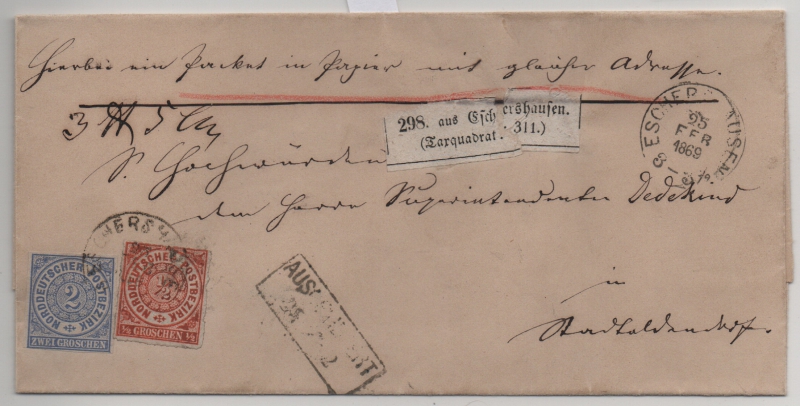 Hierbei ein Packet in Papier mit gleicher Adresse.
3 ℔ 5
298. aus Esch ershausen.
(Taxquadrat. 311.)
ESCHERS AUSEN
25
FEB
1869
Sr Hochwürden
dem Herrn Superintendenten Dedekind
in
Stadtoldendorf.
CHERSH
NORDDEUTSCHER POSTBEZIRK
2
ZWEI GROSCHEN
NORDDEUTSCHER POSTBEZIRK
1/2 GROSCHEN 1/2
AUSG
25 2